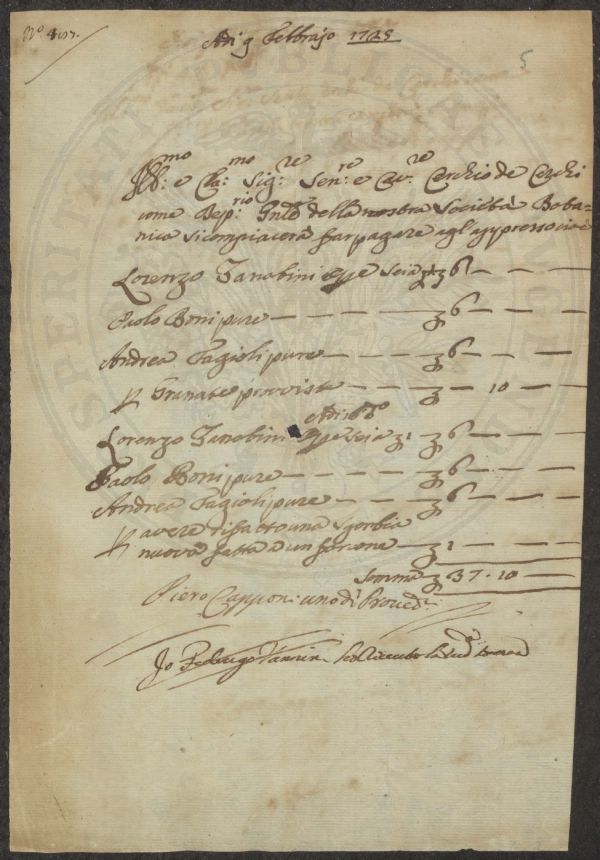 Adi 9 Febbrajo 1725
5
Ill:mo e Cla:mo Sig:re Sen:re e Cav:re Cerchio de Cerchi
come Dep:rio della nostra Società Bota=
nica si compiacerà far pagare agl'appresso cioè
Lorenzo Janobini opre seia 6 — — —
Paolo Boni pure — — — 6 — — —
Andrea Fagioli pure — — — 6 — — —
P Granate provviste — — 10 — —
Adi 16 d.o
Lorenzo Janobini opre seia 6 — — —
Paolo Boni pure — — — 6 — — —
Andrea Fagioli pure — — — 6 — — —
P avere rifatto una sgorbia
nuova fatta a un ferrone — 1 — — —
Somma 37 . 10 —
Piero Capponi uno di Proved:ri
Io Federigo ho ricevuto la sud.a